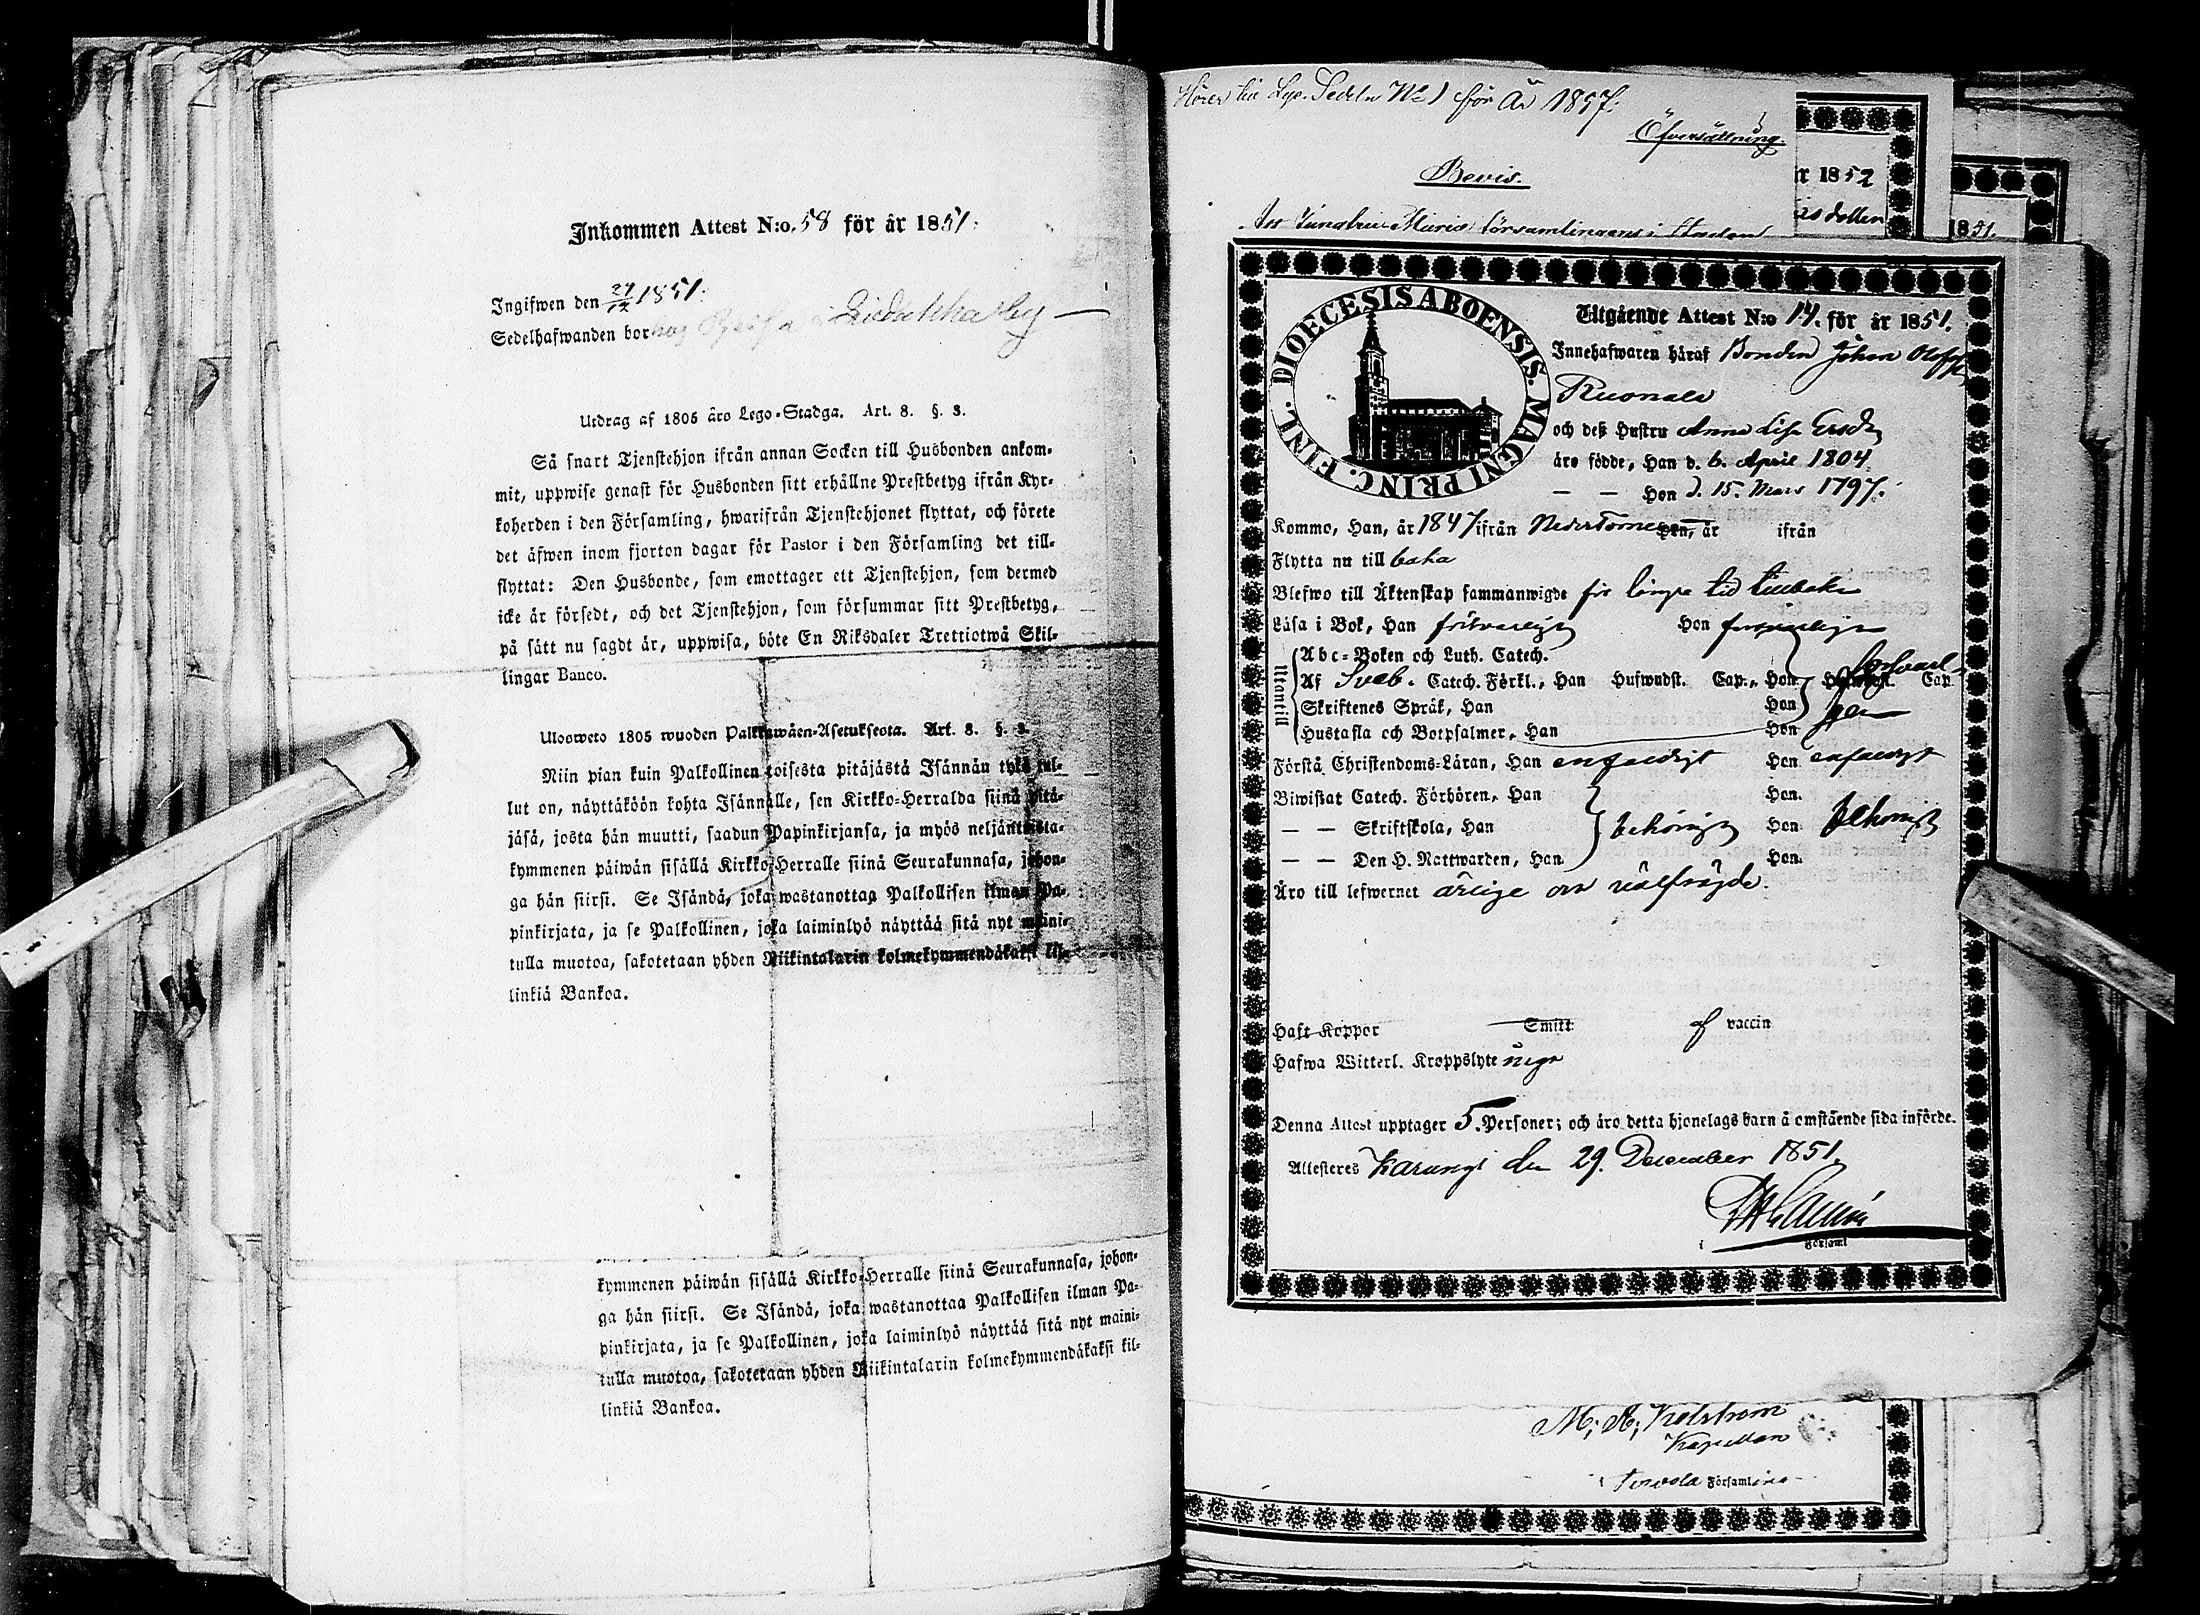 Inkommen Attest N:o. 58 för år 1851.
Ingifwen den 29/12 1851.
Sedelhafwanden bor hos
Utdrag af 1805 åro Lego-Stadga. Art. 8. §. 3.
Så snart Tjenstehjon ifrån annan Socken till Husbonden ankom-
mit, uppwise genast för Husbonden sitt erhållne Prestbetyg ifrån Kyr-
koherden i den Församling, hwarifrån Tjenstehjonet flyttat, och förete
det äfwen inom fjorton dagar för Pastor i den Församling det till-
flyttat: Den Husbonde, som emottager ett Tjenstehjon, som dermed
icke är försedt, och det Tjenstehjon, som försummar sitt Prestbetyg,
på sätt nu sagdt är, uppwisa, böte En Riksdaler Trettiotwå Skil-
lingar Banco.
Uloosweto 1805 wuoden Palkkawäen-Asetuksesta. Art. 8. §. 3.
Niin pian kuin Palkollinen toisesta pitäjästä Isännän tykö tul-
lut on, näyttäköön kohta Isännälle, sen Kirkko-Herralda siinä pitä-
jäsä, josta hän muutti, saadun Papinkirjansa, ja myös neljäntoista-
kymmenen päiwän sisällä Kirkko-Herralle siinä Seurakunnasa, johon-
ga hän siirsi. Se Isändä, joka wastanottaa Palkollisen ilman Pa-
pinkirjata, ja se Palkollinen, joka laiminlyö näyttää sitä nyt maini-
tulla muotoa, sakotetaan yhden Riikintalarin kolmekymmendäkaksi kil-
linkiä Bankoa.
kymmenen päiwän sisällä Kirkko-Herralle siinä Seurakunnasa, johon-
ga hän siirsi. Se Isändä, joka wastanottaa Palkollisen ilman Pa-
pinkirjata, ja se Palkollinen, joka laiminlyö näyttää sitä nyt maini-
tulla muotoa, sakotetaan yhden Riikintalarin kolmekymmendäkaksi kil-
linkiä Bankoa.
Hörer till Lys. Sedeln No 1 för År 1857.
Öfversättning.
Bevis.
Jungfru Mariæ församlingens i Staden
r 1852
1851.
DIOECESIS ABOENSIS. MAGNI PRINC. FINL.
Utgående Attest N:o 14. för år 1851.
Innehafwaren häraf Bonden Johan Olofss
Ruonala
och deß Hustru Anna Lisa Ersdr
äro födde, Han d. 6. April 1804.
— — Hon d. 15. Mars 1797.
Kommo, Han, år 1847 ifrån Neder Torneå Hon, år ifrån
Flytta nu till baka
Blefwo till Äktenskap sammanwigde för längre tid tillbaka
Läsa i Bok, Han försvarligt Hon försvarligt
Utantill
Abc-Boken och Luth. Catech.
Af Sveb. Catech. Förkl., Han Hufwudst. Cap., Hon Hufwudst. Cap
Skriftenes Språk, Han Hon
Hustafla och Botpsalmer, Han Hon
Förstå Christendoms-Läran, Han enfaldigt Hon enfaldigt
Biwistat Catech. Förhören, Han Hon
— — Skriftskola, Han behörigt Hon behörigt
— — Den H. Nattwarden, Han Hon
Äro till lefwernet ärlige och välfrägde.
Haft Koppor Smitt af vaccin
Hafwa Witterl. Kroppslyte inga
Denna Attest upptager 5. Personer; och äro detta hjonelags barn å omstående sida införde.
Attesteres Karungi den 29. December 1851.
i Församl
Kapellan
i Tervola Församling